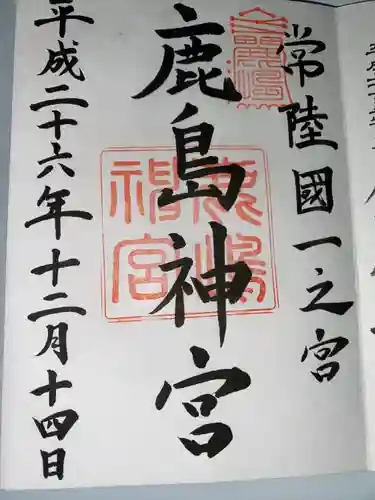 常陸國一之宮
鹿島神宮
平成二十六年十二月十四日
鹿嶋神宮